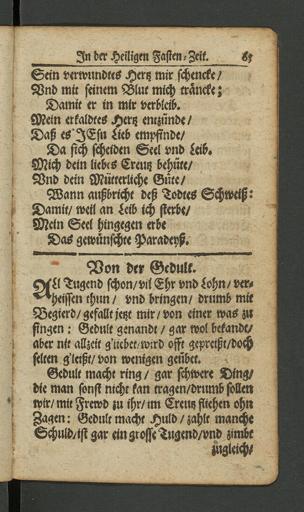 In der Heiligen Fasten-Zeit. 65
Sein verwundtes Hertz mir schencke/
Vnd mit seinem Blut mich träncke;
Damit er in mir verbleib.
Mein erkaldtes Hertz entzünde/
Daß es JEsu Lieb empfinde/
Da sich scheiden Seel vnd Leib.
Mich dein liebes Creutz behüte/
Vnd dein Mütterliche Güte/
Wann außbricht deß Todtes Schweiß:
Damit/ weil an Leib ich sterbe/
Mein Seel hingegen erbe
Das gewünschte Paradeyß.
Von der Gedult.
All Tugend schon/ vil Ehr vnd Lohn/ ver-
heissen thun/ vnd bringen/ drumb mit
Begierd/ gefallt jetzt mir/ von einer was zu
singen: Gedult genandt/ gar wol bekandt/
aber nit allzeit g'liebet/ wird offt gepreißt/ doch
selten g'leißt/ von wenigen geübet.
Gedult macht ring/ gar schwere Ding/
die man sonst nicht kan tragen/ drumb sollen
wir/ mit Frewd zu ihr/ im Creutz fliehen ohn
Zagen: Gedult macht Huld/ zahlt manche
Schuld/ ist gar ein grosse Tugend/ vnd zimbt
zugleich/